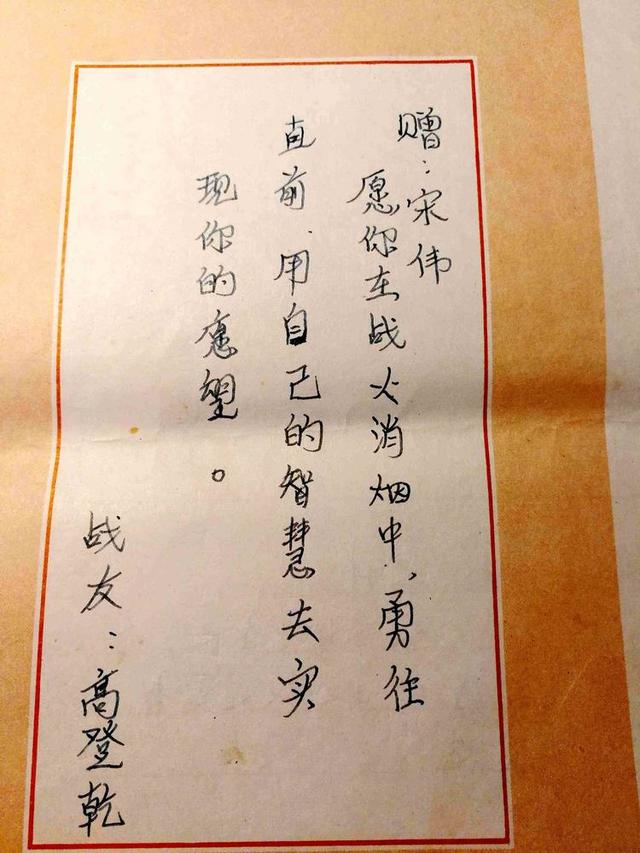 赠：宋伟
愿你在战火消烟中，勇往
直前、用自己的智慧去实
现你的愿望。
战友：高登乾